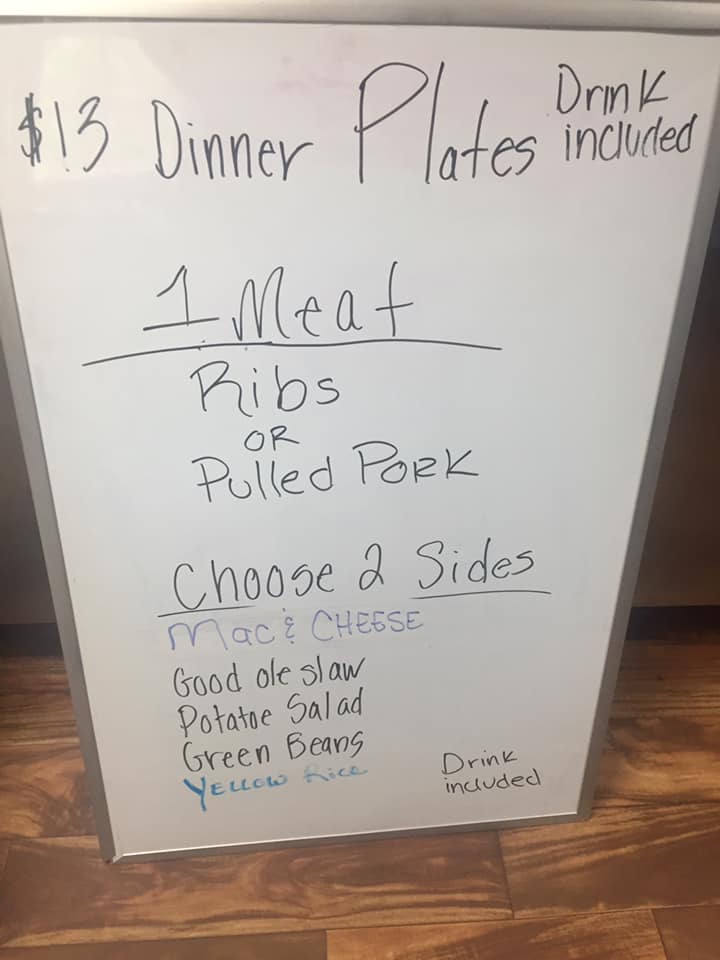 $13 Dinner Plates Drink included
1 Meat
Ribs
OR
Pulled Pork
Choose 2 Sides
Mac & CHEESE
Good ole slaw
Potatoe Salad
Green Beans
Yellow Rice
Drink
included